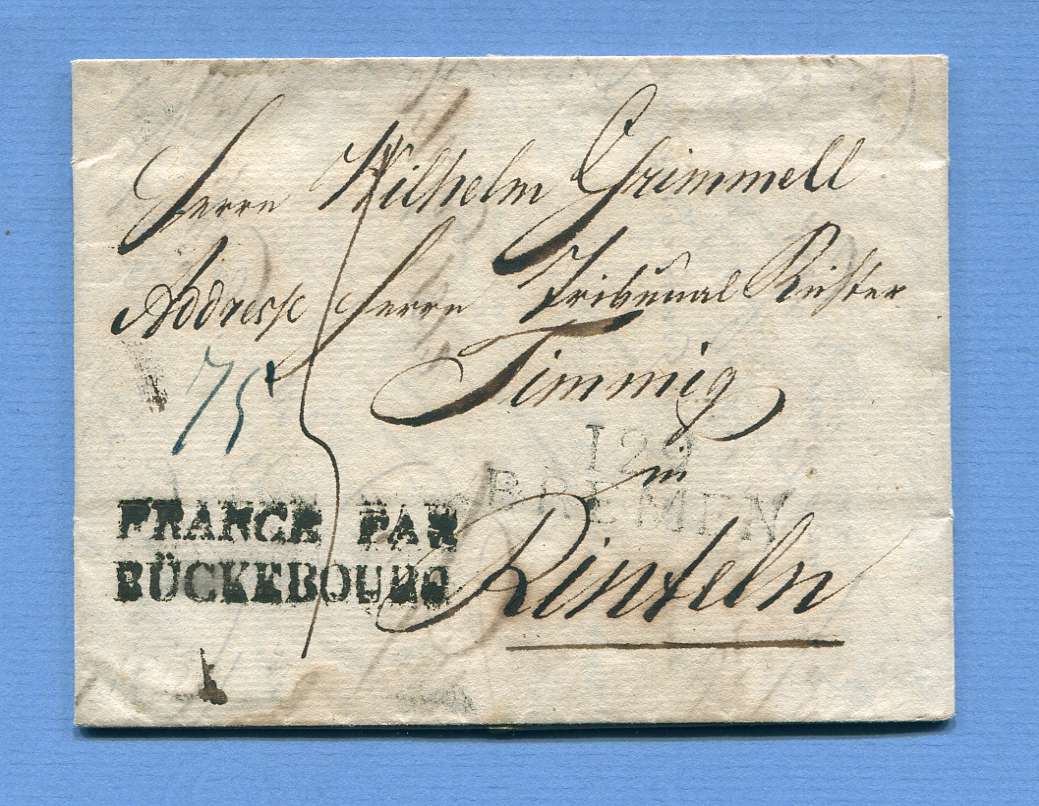 Herrn Wilhelm Grimmell
Addresse Herrn Tribunal Richter
Timmig
75
129
in
BREMEN
FRANCE PAR
BÜCKEBOURG
Rinteln